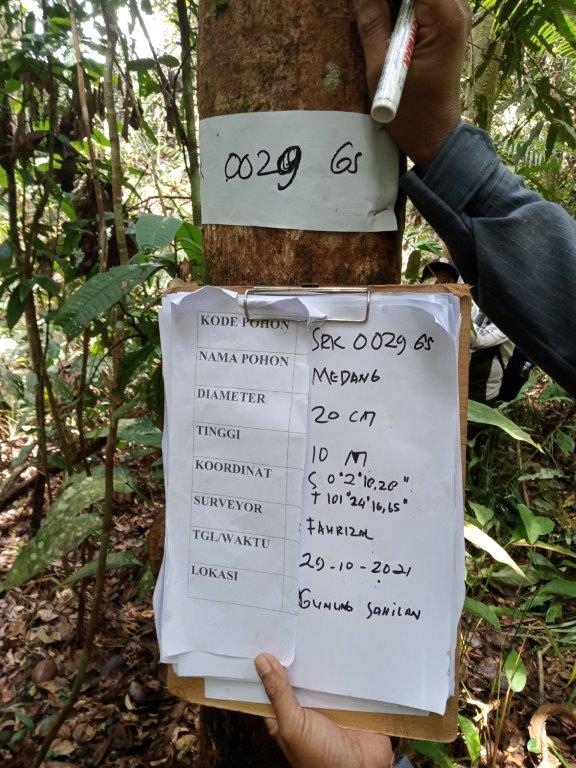 0029 GS
KODE POHON SRK 0029 GS
NAMA POHON MEDANG
DIAMETER 20 CM
TINGGI 10 M
KOORDINAT S 0°2'18,28"
T 101°24'16,65"
SURVEYOR FAHRIZAL
TGL/WAKTU 29-10-2021
LOKASI GUNUNG SAHILAN